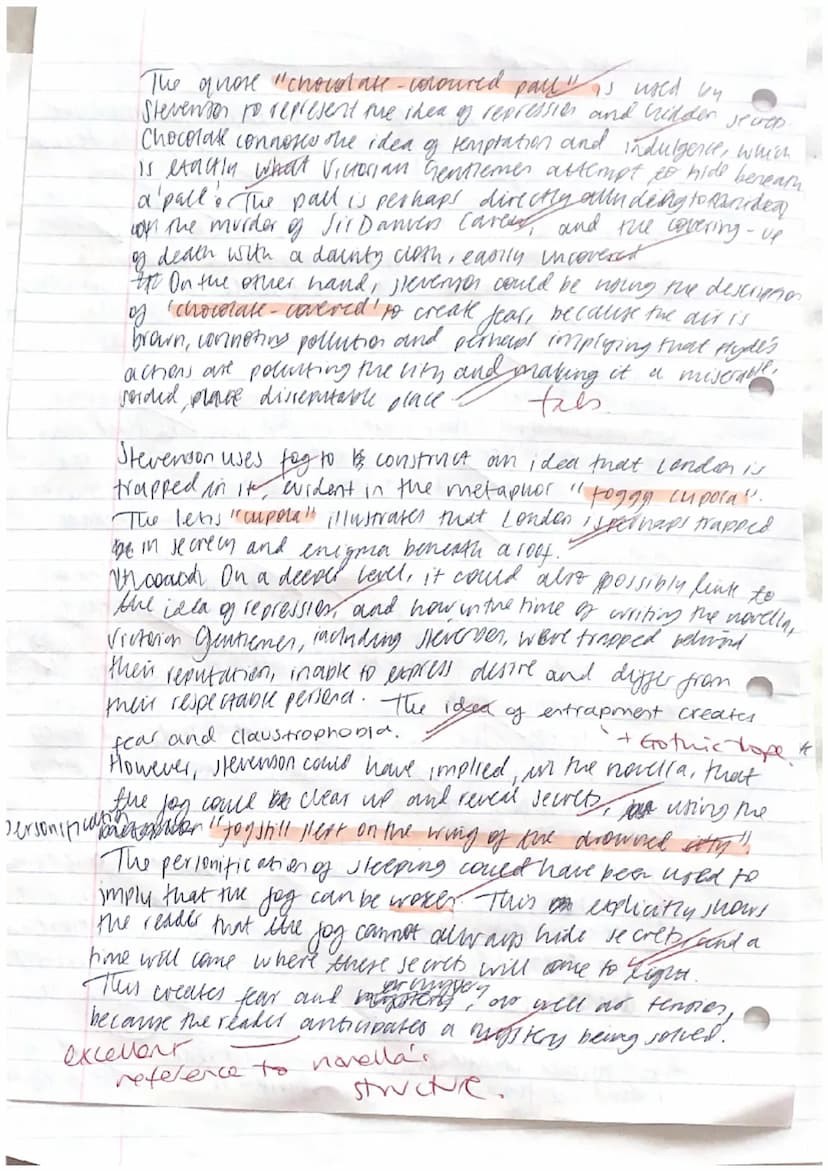 The quote "chocolate-coloured pall" is used by
Stevenson to represent the idea of repression and hidden secrets.
Chocolate connotes the idea of temptation and indulgence, which
is exactly what Victorian Gentlemen attempt to hide beneath
a 'pall'. The pall is perhaps directly alluding to
the murder of Sir Danvers Carew, and the covering-up
of death with a dainty cloth, easily uncovered
On the other hand, Stevenson could be using the description
of 'chocolate-covered' to create fear, because the air is
brown, connoting pollution and perhaps implying that Hyde's
actions are polluting the city and making it a miserable,
sordid, disreputable place
Stevenson uses fog to construct an idea that London is
trapped in it, evident in the metaphor "foggy cupola".
The lexis "cupola" illustrates that London is perhaps trapped
in secrecy and enigma beneath a roof.
On a deeper level, it could also possibly link to
the idea of repression, and how in the time of writing the novella,
Victorian Gentlemen, including Stevenson, were trapped behind
their reputation, inable to express desire and differ from
their respectable persona. The idea of entrapment creates
fear and claustrophobia.
+ Gothic trope. *
However, Stevenson could have implied, in the novella, that
the fog could clear up and reveal secrets, using the
personification "fog still slept on the wing of the drowned city".
The personification of sleeping could have been used to
imply that the fog can be woken. This explicitly shows
the reader that the fog cannot always hide secrets, and a
time will come where these secrets will come to light.
This creates fear and as well as tension,
because the reader anticipates a mystery being solved.
excellent
reference to novella's
structure.